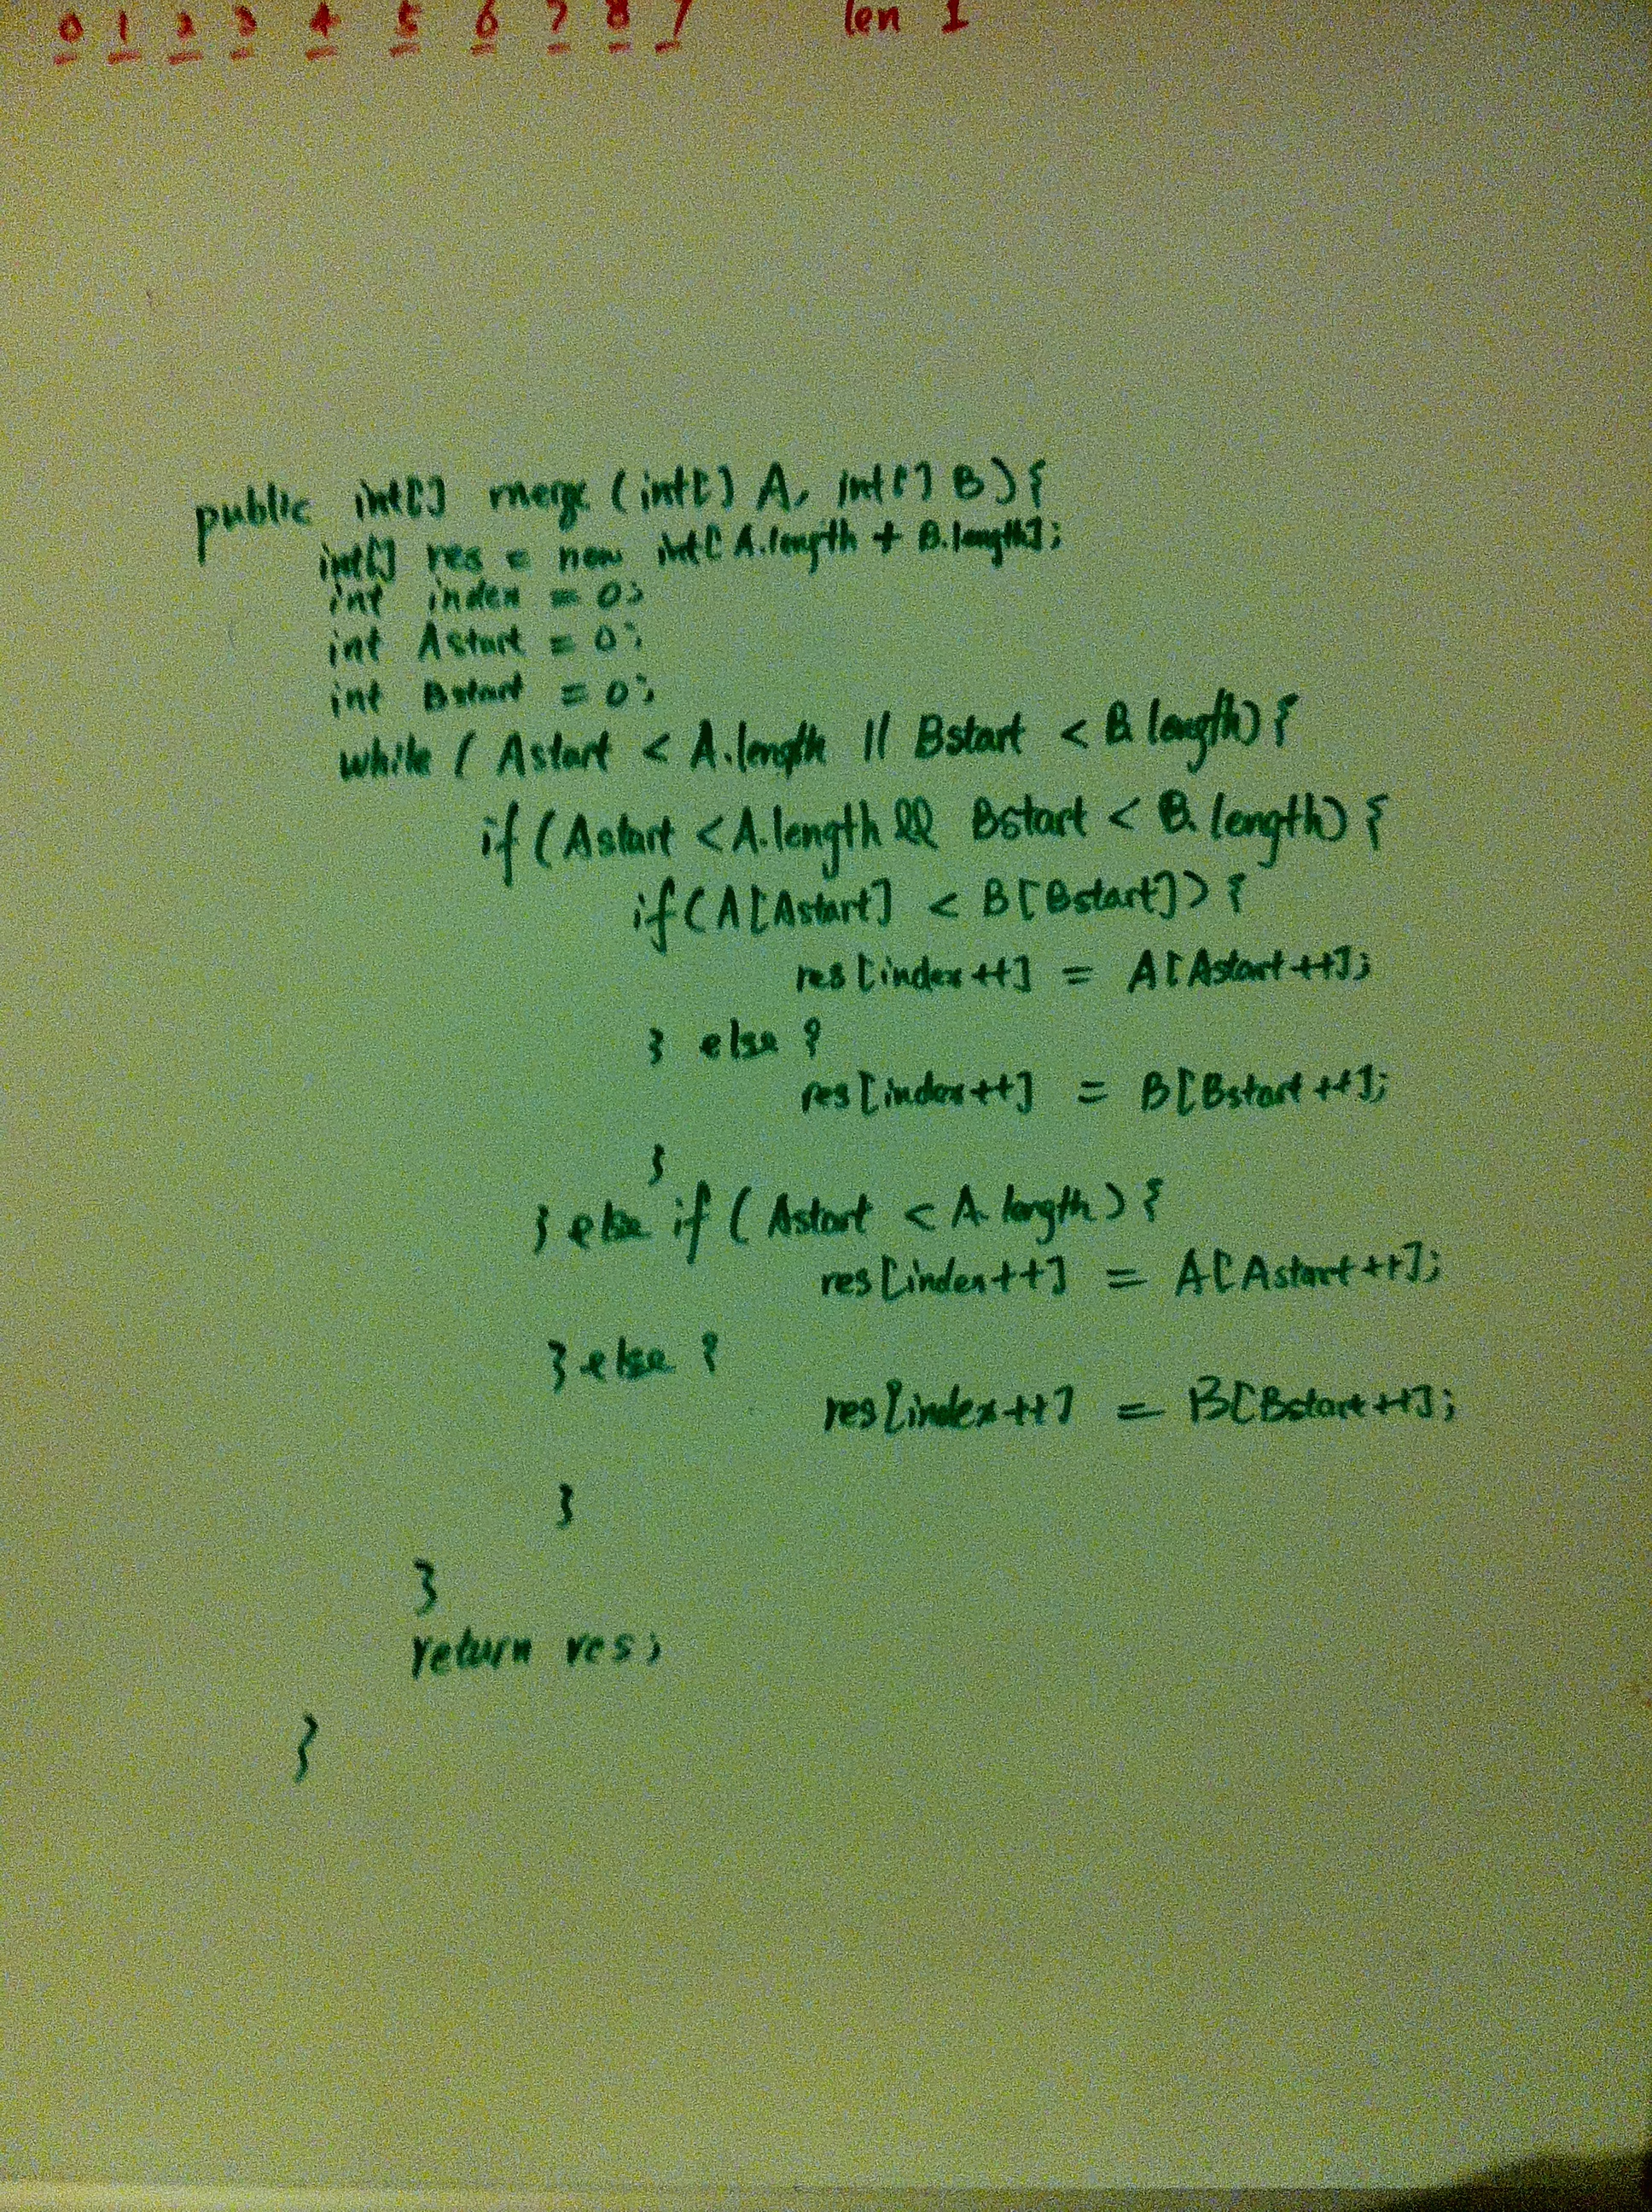 0 1 2 3 4 5 6 7 8 len 1
public int[] merge (int[] A, int[] B) {
int[] res = new int[A.length + B.length];
int index = 0;
int Astart = 0;
int Bstart = 0;
while ( Astart < A.length || Bstart < B.length) {
if (Astart < A.length && Bstart < B.length) {
if (A[Astart] < B[Bstart]) {
res[index++] = A[Astart++];
} else {
res[index++] = B[Bstart++];
}
} else if (Astart < A.length) {
res[index++] = A[Astart++];
} else {
res[index++] = B[Bstart++];
}
}
return res;
}